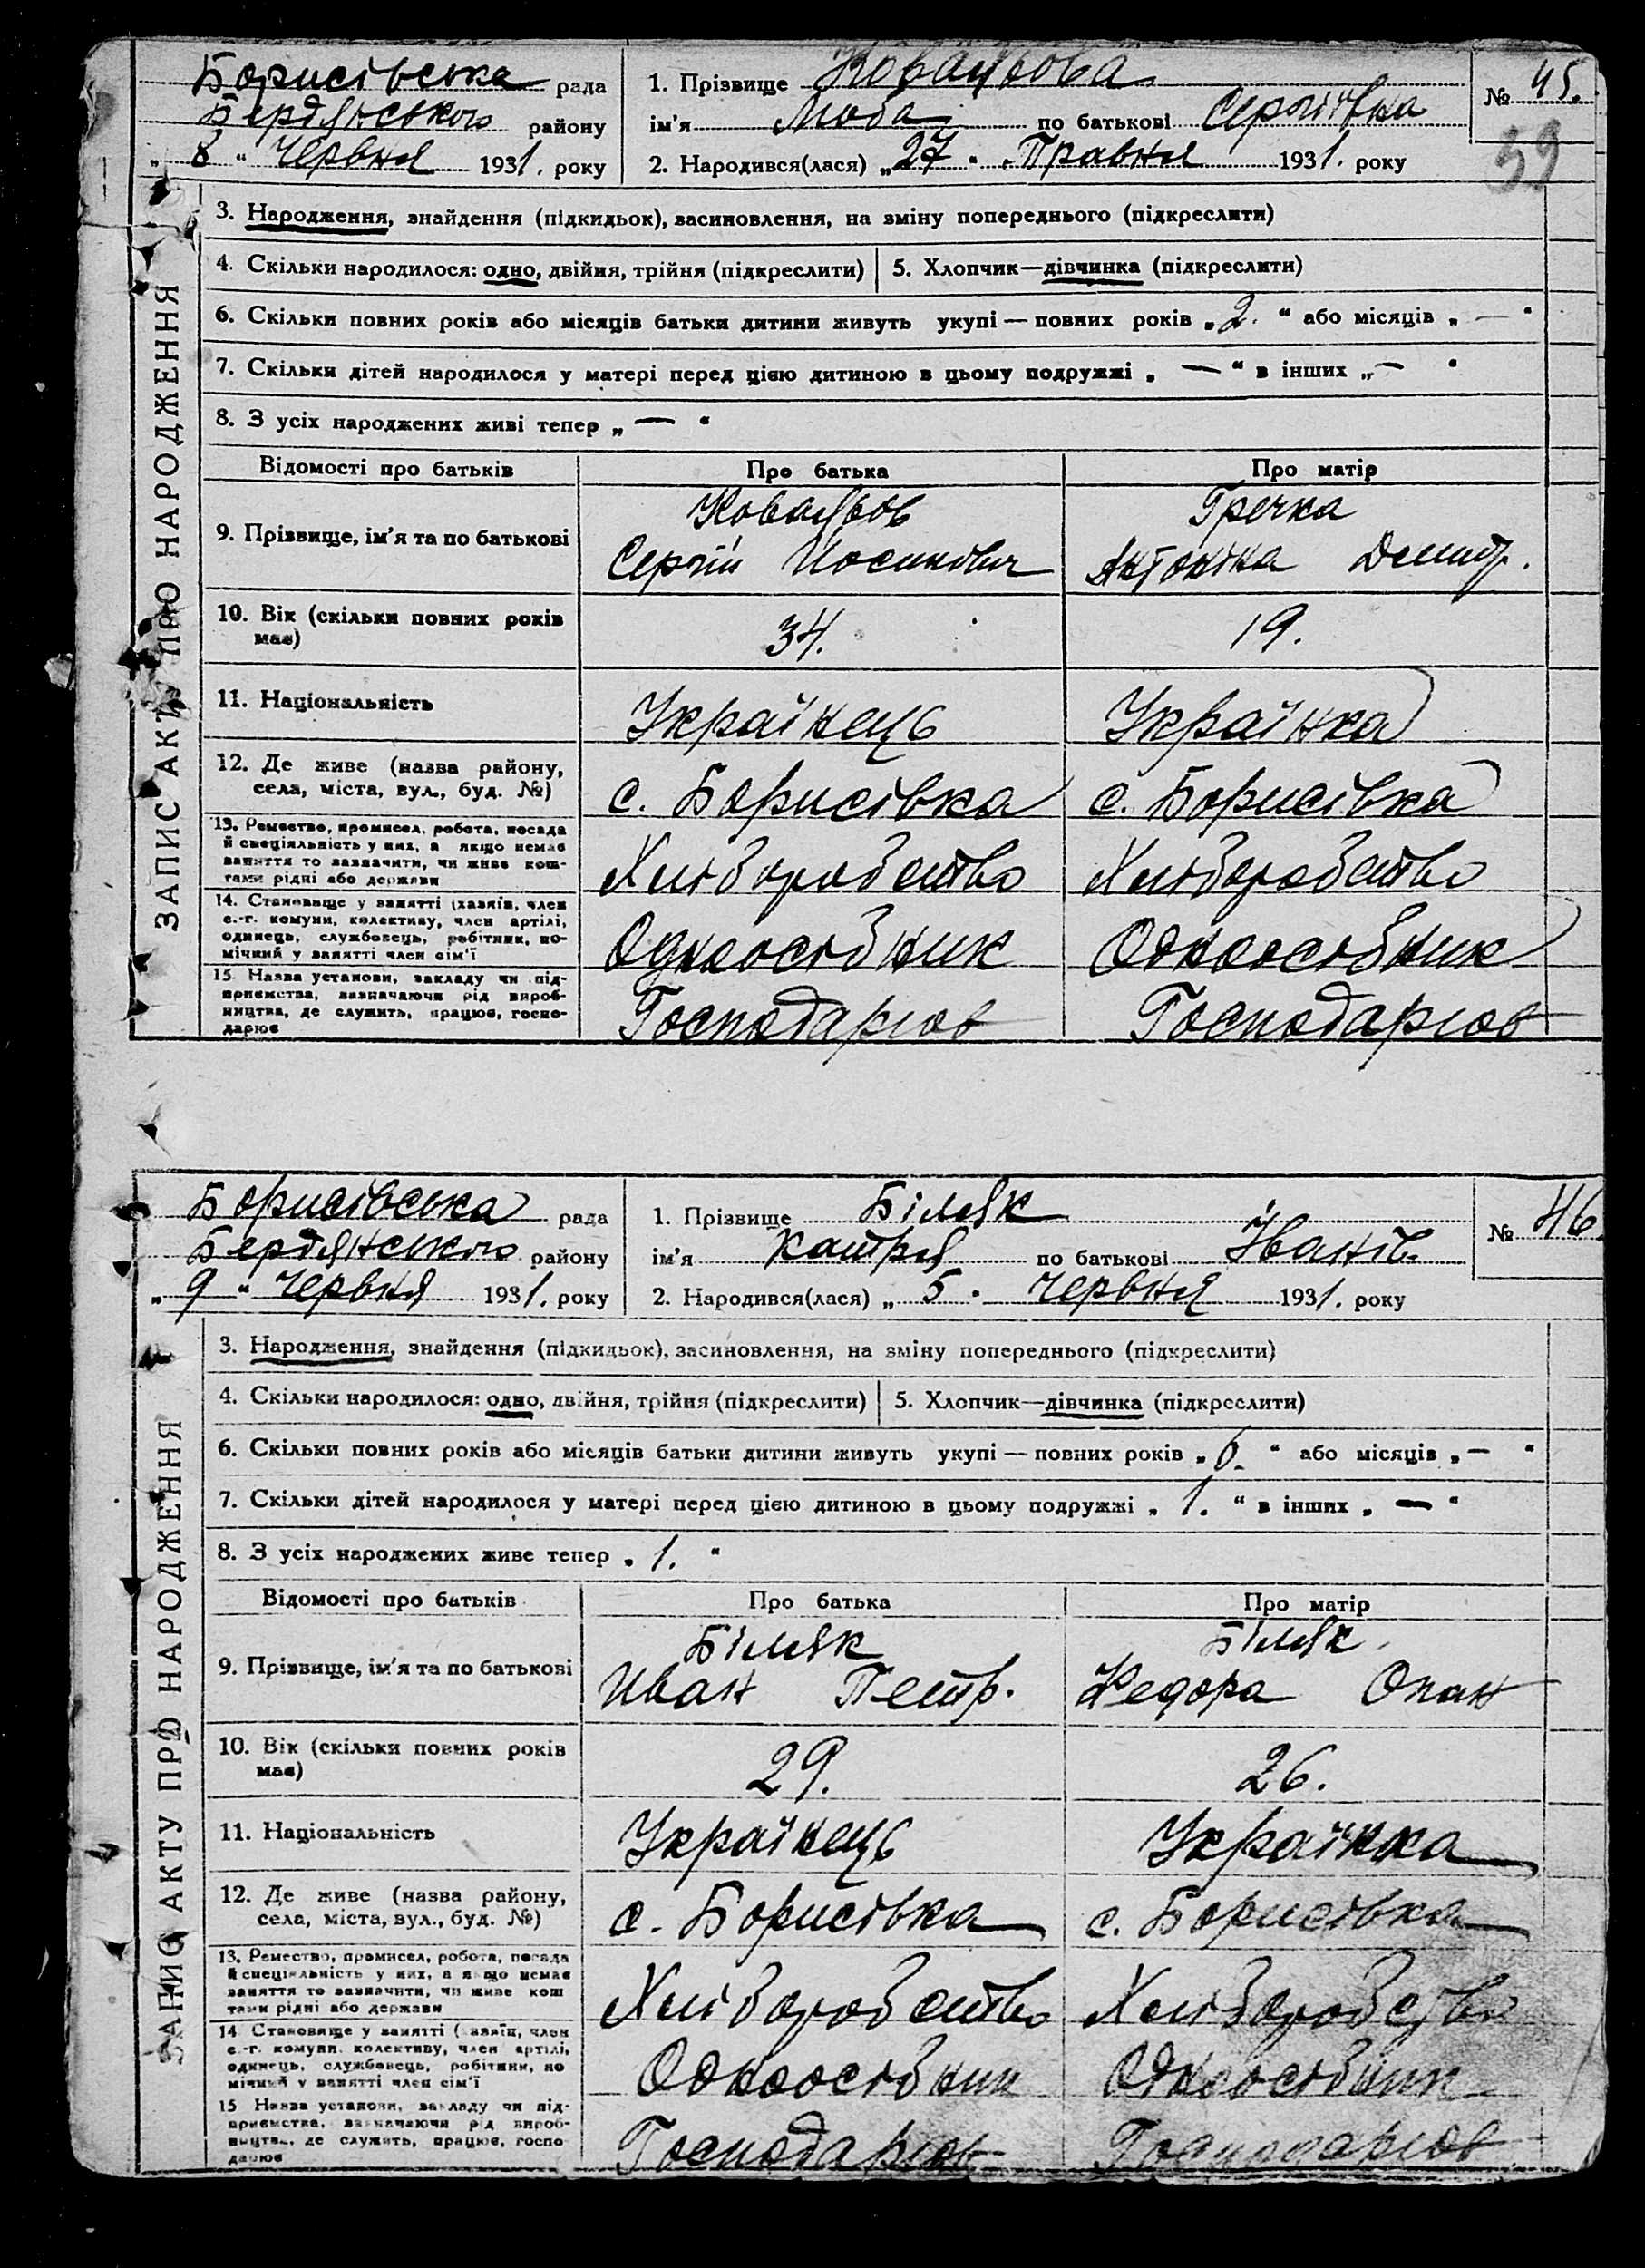 Борисівська рада
Бердянського району
„ 8 " Червня 1931. року
1. Прізвище Ковальова
ім'я Люба по батькові Сергіївна
2. Народився(лася) „ 27 " Травня 1931. року
№ 45.
39
ЗАПИС АКТУ ПРО НАРОДЖЕННЯ
3. Народження, знайдення (підкидьок), засиновлення, на зміну попереднього (підкреслити)
4. Скільки народилося: одно, двійня, трійня (підкреслити) 5. Хлопчик—дівчинка (підкреслити)
6. Скільки повних років або місяців батьки дитини живуть укупі — повних років „ 2. " або місяців „ — "
7. Скільки дітей народилося у матері перед цією дитиною в цьому подружжі „ — " в інших „ — "
8. З усіх народжених живі тепер „ — "
Відомості про батьків Про батька Про матір
9. Прізвище, ім'я та по батькові
Ковальов
Сергій Йосипович
Гречка
Антоніна Демит.
10. Вік (скільки повних років
має)
34.
19.
11. Національність
Українець
Українка
12. Де живе (назва району,
села, міста, вул., буд. №)
с. Борисівка
с. Борисівка
13. Ремество, промисел, робота, посада
й спеціяльність у них, а якщо немає
заняття то зазначити, чи живе кош-
тами рідні або держави
Хліборобство
Хліборобство
14. Становище у занятті (хазяїн, член
с.-г. комуни, колективу, член артілі,
одинець, службовець, робітник, по-
мічний у занятті член сім'ї
Одноосібник
Одноосібник
15. Назва установи, закладу чи під-
приємства, зазначаючи рід вироб-
ництва, де служить, працює, госпо-
дарює
Господарює
Господарює
Борисівська рада
Бердянського району
„ 9 " Червня 1931. року
1. Прізвище Біляк
ім'я Катря по батькові Іванів.
2. Народився(лася) „ 5 " Червня 1931. року
№ 46.
ЗАПИС АКТУ ПРО НАРОДЖЕННЯ
3. Народження, знайдення (підкидьок), засиновлення, на зміну попереднього (підкреслити)
4. Скільки народилося: одно, двійня, трійня (підкреслити) 5. Хлопчик—дівчинка (підкреслити)
6. Скільки повних років або місяців батьки дитини живуть укупі — повних років „ 6. " або місяців „ — "
7. Скільки дітей народилося у матері перед цією дитиною в цьому подружжі „ 1. " в інших „ — "
8. З усіх народжених живе тепер „ 1. "
Відомості про батьків Про батька Про матір
9. Прізвище, ім'я та по батькові
Біляк
Иван Петр.
Біляк
Федора Опан
10. Вік (скільки повних років
має)
29.
26.
11. Національність
Українець
Українка
12. Де живе (назва району,
села, міста, вул., буд. №)
с. Борисівка
с. Борисівка
13. Ремество, промисел, робота, посада
й спеціяльність у них, а якщо немає
заняття то зазначити, чи живе кош
тами рідні або держави
Хліборобство
Хліборобство
14 Становище у занятті (хазяїн, член
с.-г. комуни, колективу, член артілі,
одинець, службовець, робітник, по
мічний у занятті член сім'ї
Одноосібник
Одноосібник
15 Назва установи, закладу чи під-
приємства, зазначаючи рід вироб-
ництва, де служить, працює, госпо
дарює
Господарює
Господарює